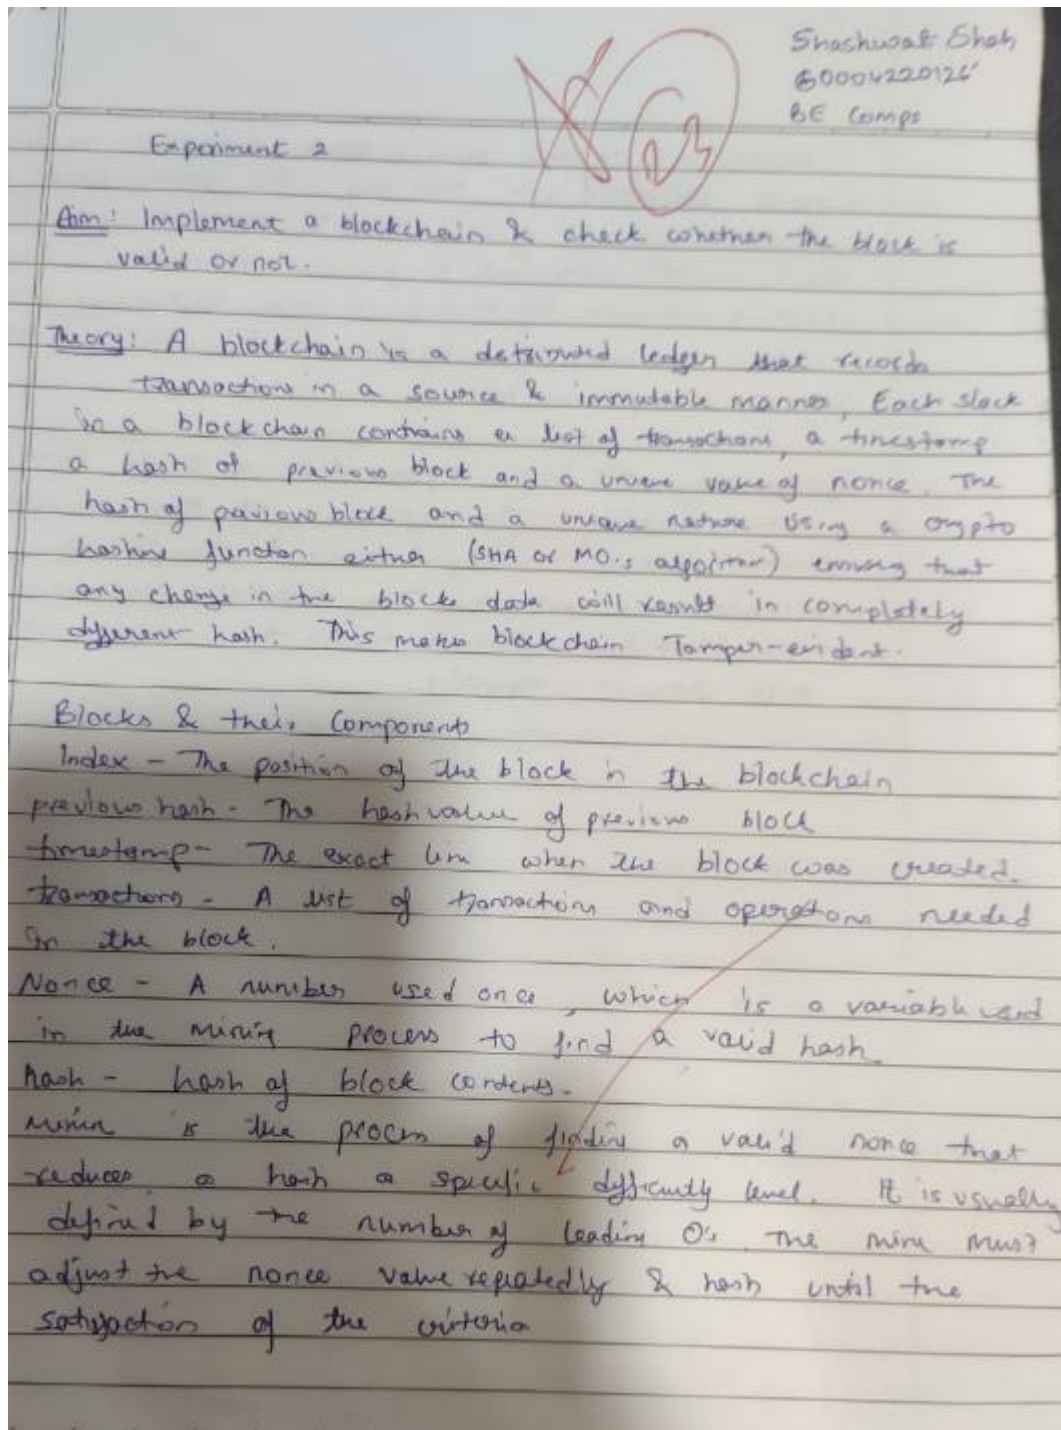 Shashwat Shah
60004220126
BE Comps
23
Experiment 2
Aim: Implement a blockchain & check whether the block is
valid or not.
Theory: A blockchain is a distributed ledger that records
transactions in a source & immutable manner. Each block
in a blockchain contains a list of transactions, a timestamp
a hash of previous block and a unique value of nonce. The
hash of previous block and a unique nature using a crypto
hashing function either (SHA or algorithm) ensuring that
any change in the blocks data will result in completely
different hash. This makes blockchain Tamper-evident.
Blocks & their Components
Index - The position of the block in the blockchain
previous hash - The hash value of previous block
timestamp - The exact time when the block was created.
transactions - A list of transactions and operations needed
in the block.
Nonce - A number used once, which is a variable used
in the mining process to find a valid hash.
hash - hash of block contents.
Mining is the process of finding a valid nonce that
reduces a hash a specific difficulty level. It is usually
defined by the number of leading 0's. The mine must
adjust the nonce value repeatedly & hash until the
satisfaction of the criteria